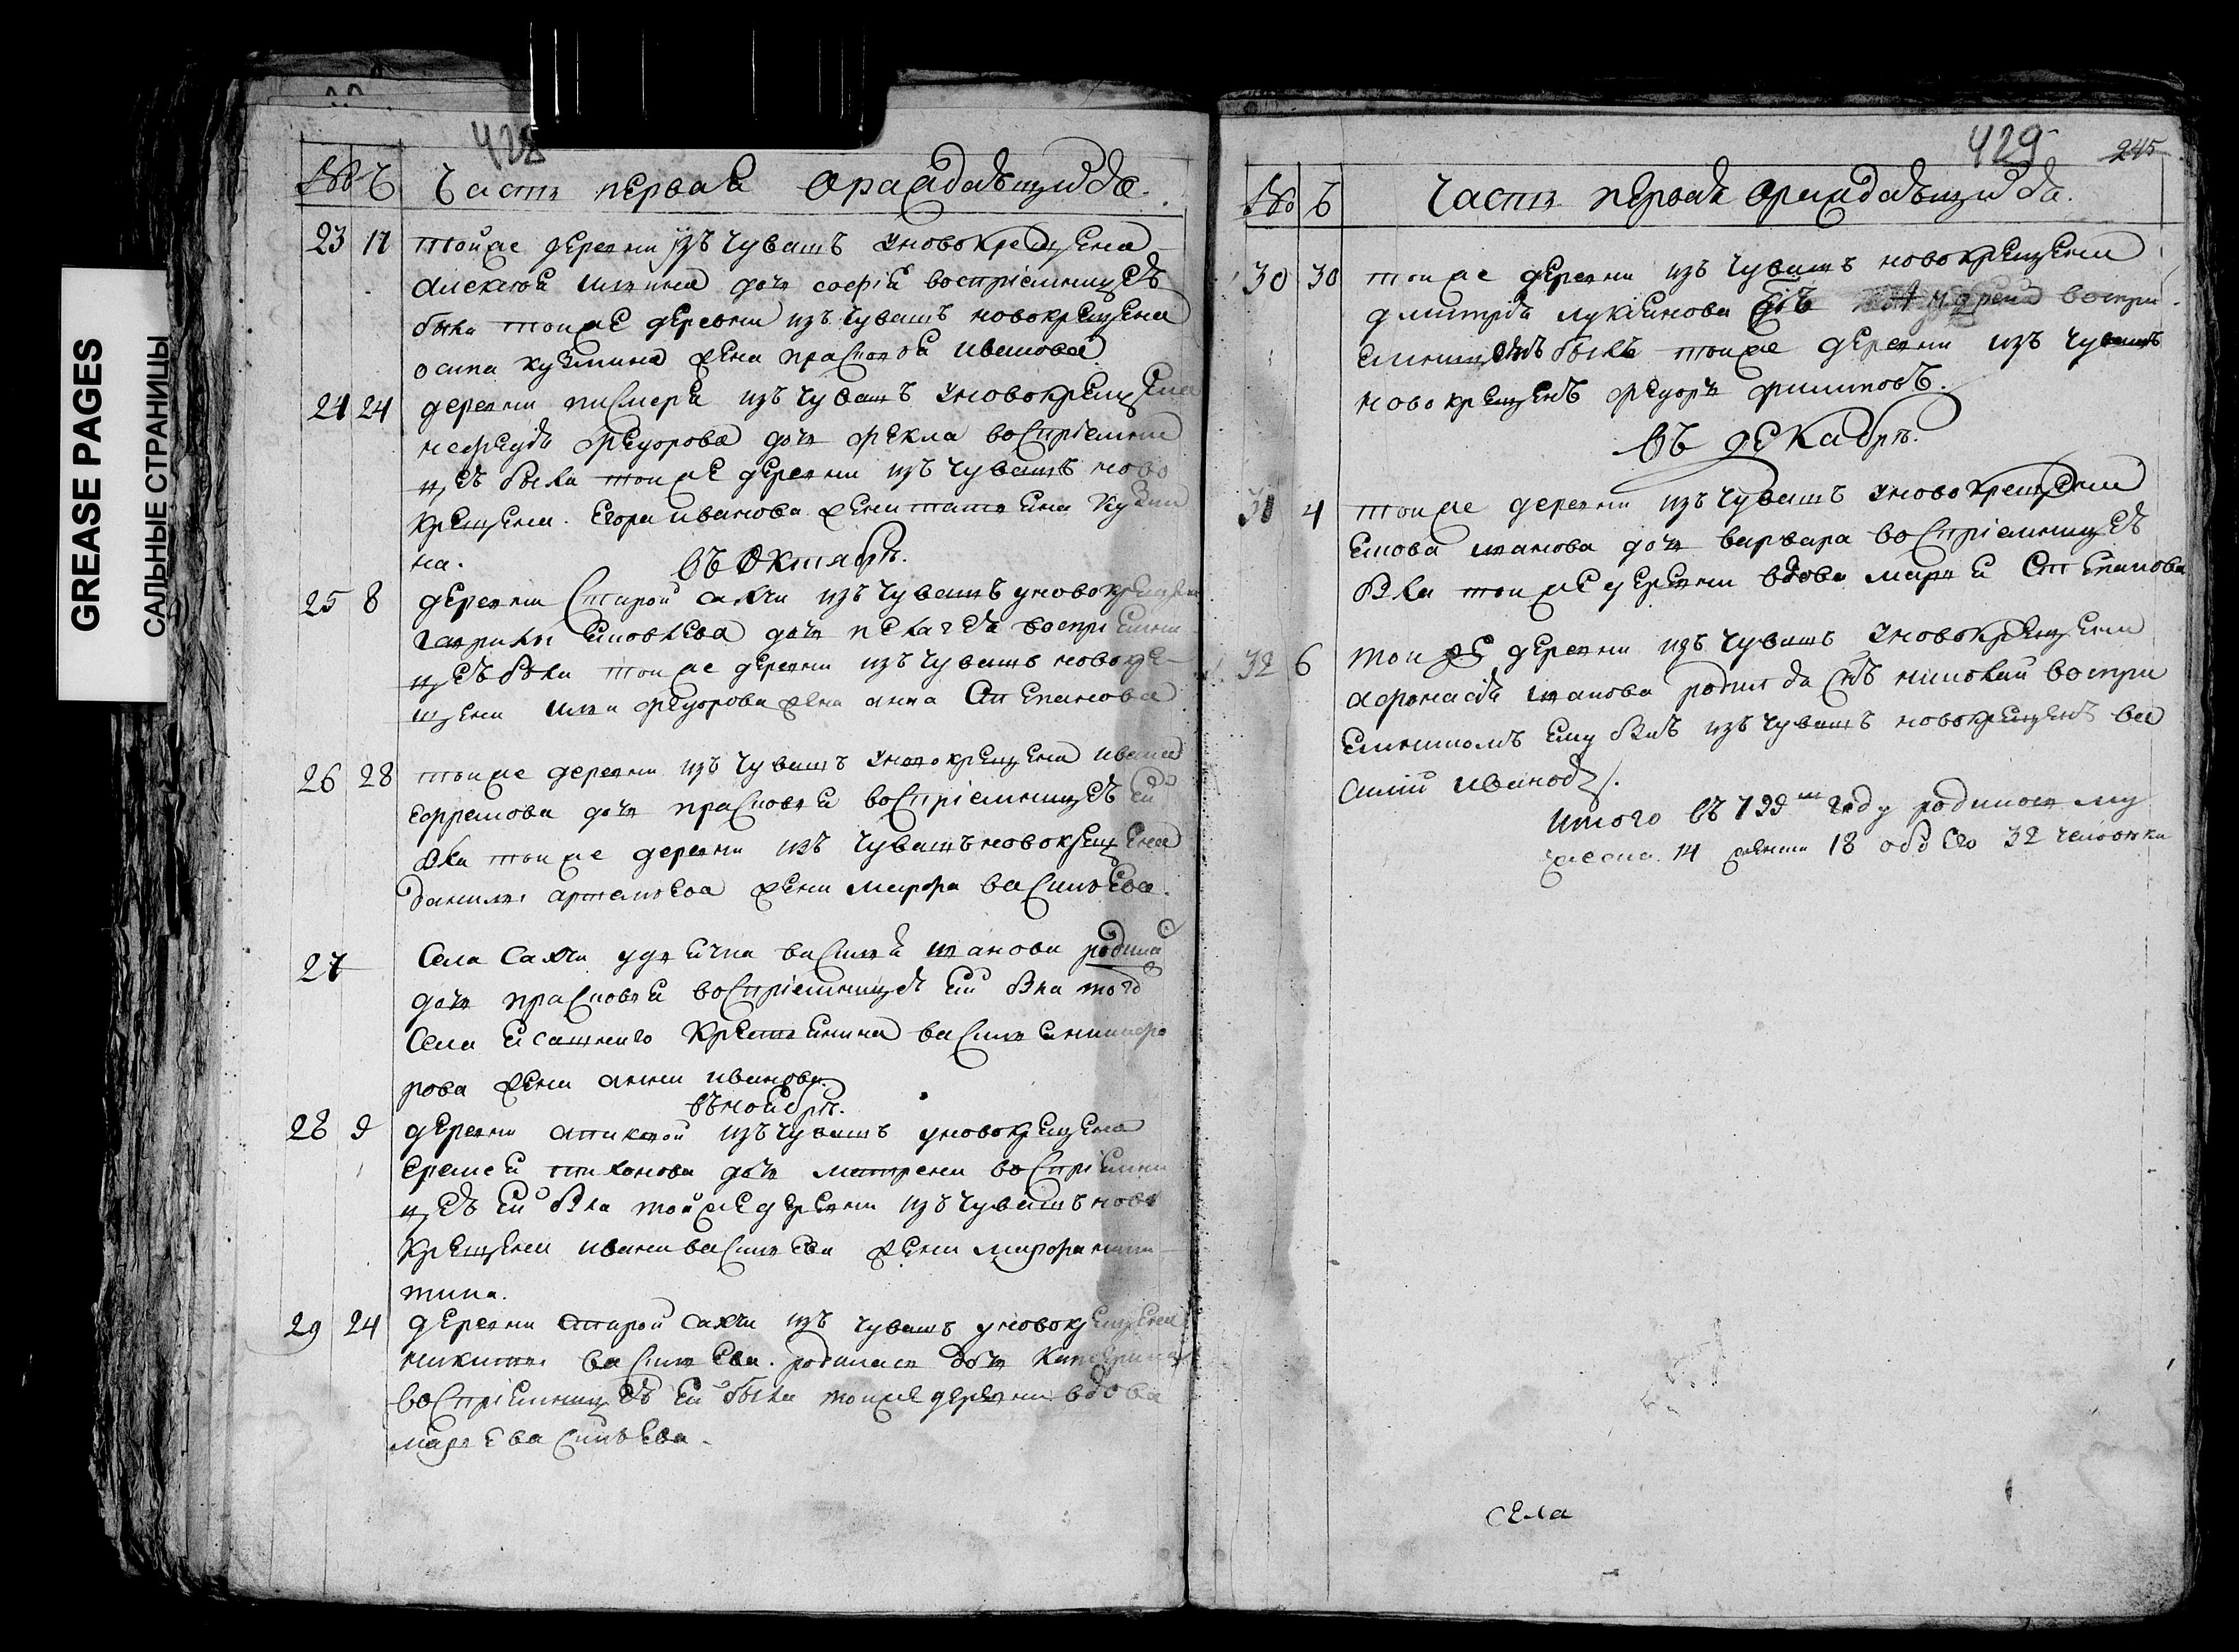 GREASE PAGES
САЛЬНЫЕ СТРАНИЦЫ
428
№ Ч Часть первая о раждающихся.
23 17 тойже деревни изъ чувашъ уновокрещена
Алексея дочь софія воспріемницей
была тоиже деревни изъ чувашъ новокрещена
осипа кузмина жена прасковя иванова
24 24 деревни изъ чувашъ уновокрещена
нефеда федорова дочь фекла воспріемни
цей была тоиже деревни изъ чувашъ ново
крещена. Егора иванова жена татяна кузми
на.
въ октябрѣ.
25 8 деревни старой сахчи изъ чувашъ уновокрещена
гаврилы дочь пелагея воспріемни
цей была тоиже деревни изъ чувашъ новокре
щена ильи федорова жена анна степанова
26 28 тоиже деревни изъ чувашъ уновокрещена ивана
ефремова дочь прасковя воспріемницей ей
была тоиже деревни изъ чувашъ новокрещена
данилы артемьева жена марфа васильева.
27 села сахчи василя иванова родила
дочь прасковя воспріемницей ей была того
села ясашного крестянина василя никифо
рова жена анна иванова.
въ ноябрѣ.
28 9 деревни изъ чувашъ уновокрещена
еремея тихонова дочь матрена воспріемни
цей ей была тойже деревни изъ чувашъ ново
крещена ивана васильева жена марфа ники
тина.
29 24 деревни старой сахчи изъ чувашъ уновокрещена
никиты васильева. родилась дочь катерина
воспріемницей ей была тоиже деревни вдова
маря васильева.
429 245
№ Ч Часть первая о раждающихся.
30 30 тоиже деревни изъ чувашъ новокрещена
дмитрія лукоянова сынъ андреи воспри
емникомъ былъ тоиже деревни изъ чувашъ
новокрещенъ федоръ филиповъ.
въ декабрѣ.
31 4 тоиже деревни изъ чувашъ уновокрещена
иванова дочь варвара воспріемницей
была тоиже деревни вдова маря степанова
32 6 тоиже деревни изъ чувашъ уновокрещена
афонасія иванова родился сынъ николай воспри
емникомъ ему былъ изъ чувашъ новокрещенъ ва
силій ивановъ.
итого въ 799м году родилось му
жеска 14 женска 18 обоего 32 человѣка
села